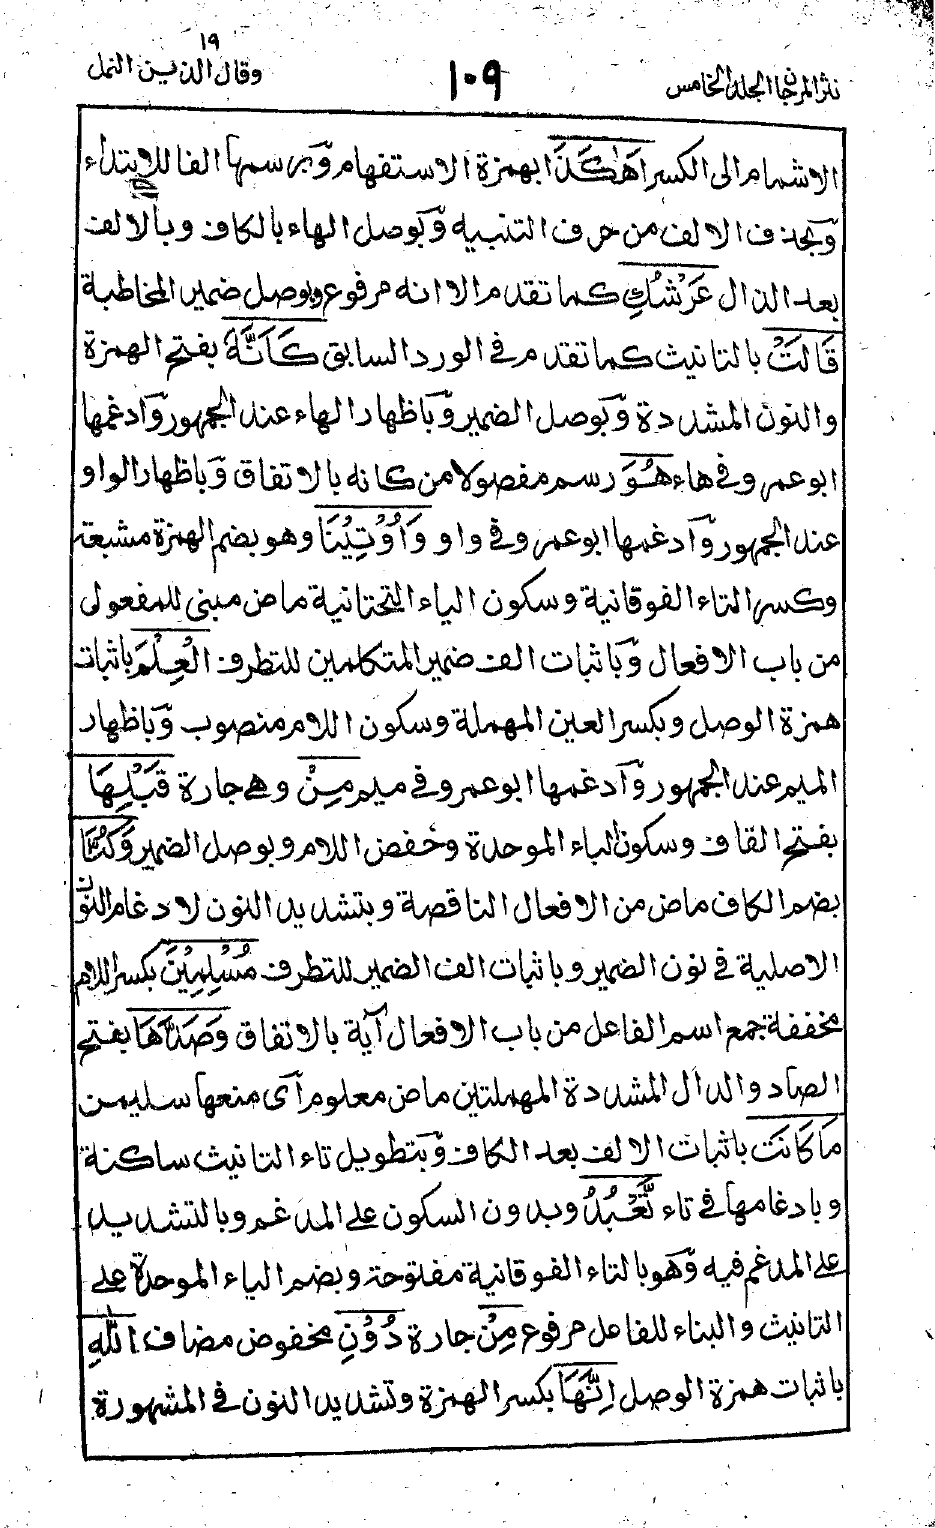 نثر المرجان الجلد الخامس
١٠٩
١٩
وقال الذين النمل
الاشمام الى الكسر اَهٰكَذَا بهمزة الاستفهام وَبرسمها الفا للابتداء
وَبحذف الالف من حرف التنبيه وَبوصل الهاء بالكاف وبالالف
بعد الذال عَرْشُكِ كما تقدم الا انه مرفوع وبوصل ضمير المخاطبة
قَالَتْ بالتانيث كما تقدم في الورد السابق كَاَنَّهٗ بفتح الهمزة
والنون المشددة وَبوصل الضمير وَباظهار الهاء عند الجمهور وَادغمها
ابو عمرو في هاء هُوَ رسم مفصولا من كانه بالاتفاق وَباظهار الواو
عند الجمهور وَادغمها ابو عمرو في واو وَاُوْتِيْنَا وهو بضم الهمزة مشبعة
وكسر التاء الفوقانية وسكون الياء التحتانية ماض مبنى للمفعول
من باب الافعال وَباثبات الف ضمير المتكلمين للتطرف الْعِلْمَ باثبات
همزة الوصل وبكسر العين المهملة وسكون اللام منصوب وَباظهار
الميم عند الجمهور وَادغمها ابو عمرو في ميم مِنْ وهي جارة قَبْلِهَا
بفتح القاف وسكون الباء الموحدة وخفض اللام وبوصل الضمير وَكُنَّا
بضم الكاف ماض من الافعال الناقصة وبتشديد النون لادغام النون
الاصلية في نون الضمير وباثبات الف الضمير للتطرف مُسْلِمِيْنَ بكسر اللام
مخففة جمع اسم الفاعل من باب الافعال آية بالاتفاق وَصَدَّهَا بفتح
الصاد والدال المشددة المهملتين ماض معلوم آى منعها سليمن
مَا كَانَت باثبات الالف بعد الكاف وَبتطويل تاء التانيث ساكنة
وبادغامها في تاء تَّعْبُدُ وبدون السكون على المدغم وبالتشديد
على المدغم فيه وَهو بالتاء الفوقانية مفتوحة وبضم الباء الموحدة على
التانيث والبناء للفاعل مرفوع مِنْ جارة دُوْنِ مخفوض مضاف اللّٰهِ
باثبات همزة الوصل اِنَّهَا بكسر الهمزة وتشديد النون في المشهورة